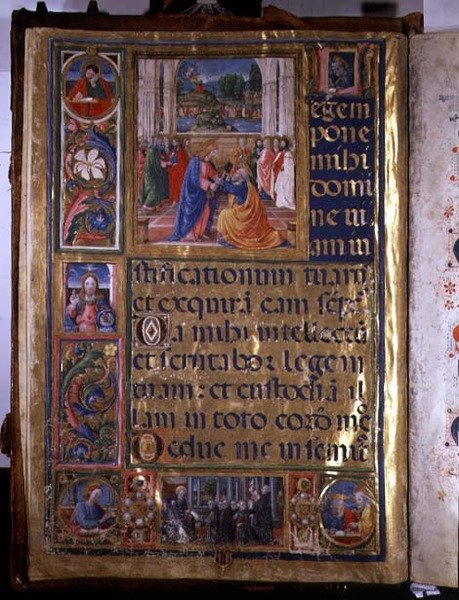 Legem
pone
mihi
domi
ne ui
am iu
stificationum tuarū
et exquirā eam sēp̄
Da mihi intellectū
et scrutabor legem
tuam: et custodiā il
lam in toto corde meo
Deduc me in semit̄